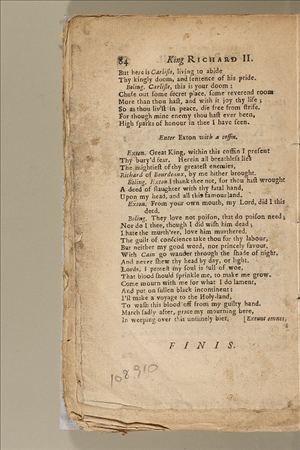 84 King RICHARD II.
But here is Carlisle, living to abide
Thy kingly doom, and sentence of his pride.
Boling. Carlisle, this is your doom:
Chuse out some secret place, some reverend room
More than thou hast, and with it joy thy life;
So as thou liv'st in peace, die free from strife.
For though mine enemy thou hast ever been,
High sparks of honour in thee I have seen.
Enter Exton with a coffin.
Exton. Great King, within this coffin I present
Thy bury'd fear. Herein all breathless lies
The mightiest of thy greatest enemies,
Richard of Bourdeaux, by me hither brought.
Boling. Exton I thank thee not, for thou hast wrought
A deed of slaughter with thy fatal hand,
Upon my head, and all this famous land.
Exton. From your own mouth, my Lord, did I this
deed.
Boling. They love not poison, that do poison need;
Nor do I thee, though I did wish him dead;
I hate the murth'rer, love him murthered.
The guilt of conscience take thou for thy labour,
But neither my good word, nor princely favour.
With Cain go wander through the shade of night,
And never shew thy head by day, or light.
Lords, I protest my soul is full of woe,
That blood should sprinkle me, to make me grow.
Come mourn with me for what I do lament,
And put on sullen black incontinent:
I'll make a voyage to the Holy-land,
To wash this blood off from my guilty hand.
March sadly after, grace my mourning here,
In weeping over this untimely bier. [Exeunt omnes.
FINIS.
108910